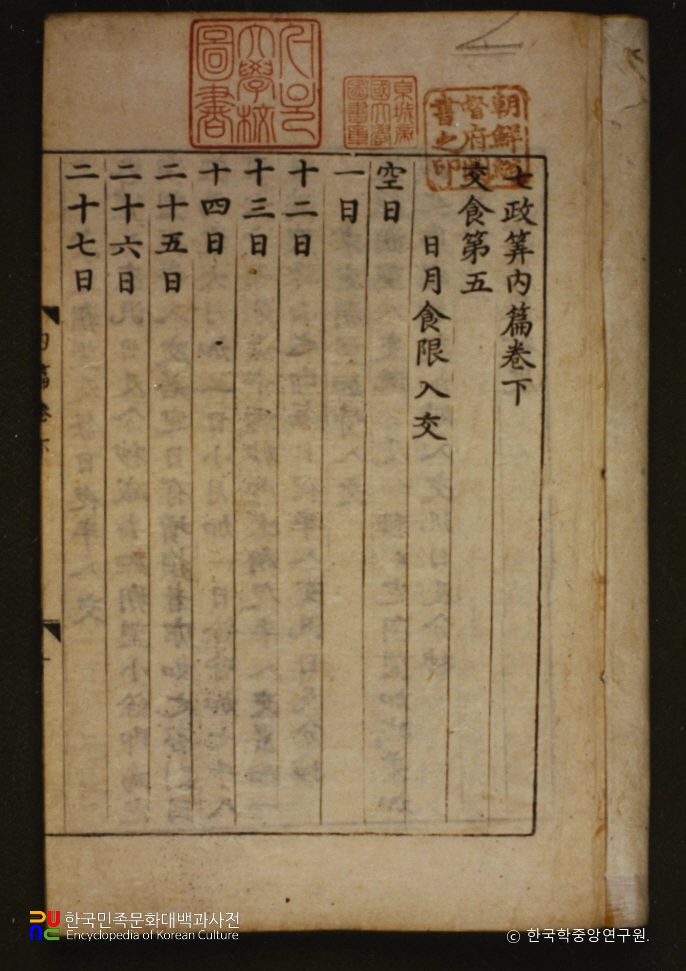 七政筭内篇卷下
交食第五
日月食限入交
空日
一日
十二日
十三日
十四日
二十五日
二十六日
二十七日
朝鮮總督府圖書之印
京城帝國大學圖書章
大學校圖書
한국민족문화대백과사전
Encyclopedia of Korean Culture
© 한국학중앙연구원.